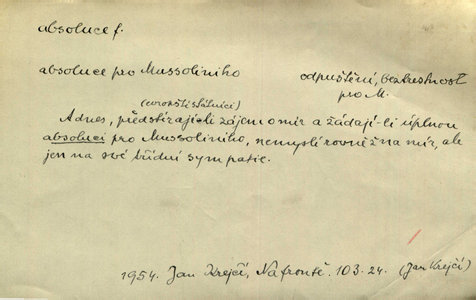 absoluce f.
absoluce pro Mussoliniho odpuštění, beztrestnost
pro M.
(evropští státníci)
A dnes, předstírají-li zájem o mír a žádají-li úplnou
absoluci pro Mussoliniho, nemyslí rovněž na mír, ale
jen na své třídní sympatie.
1954. Jan Krejčí, Na frontě. 103.24. (Jan Krejčí)